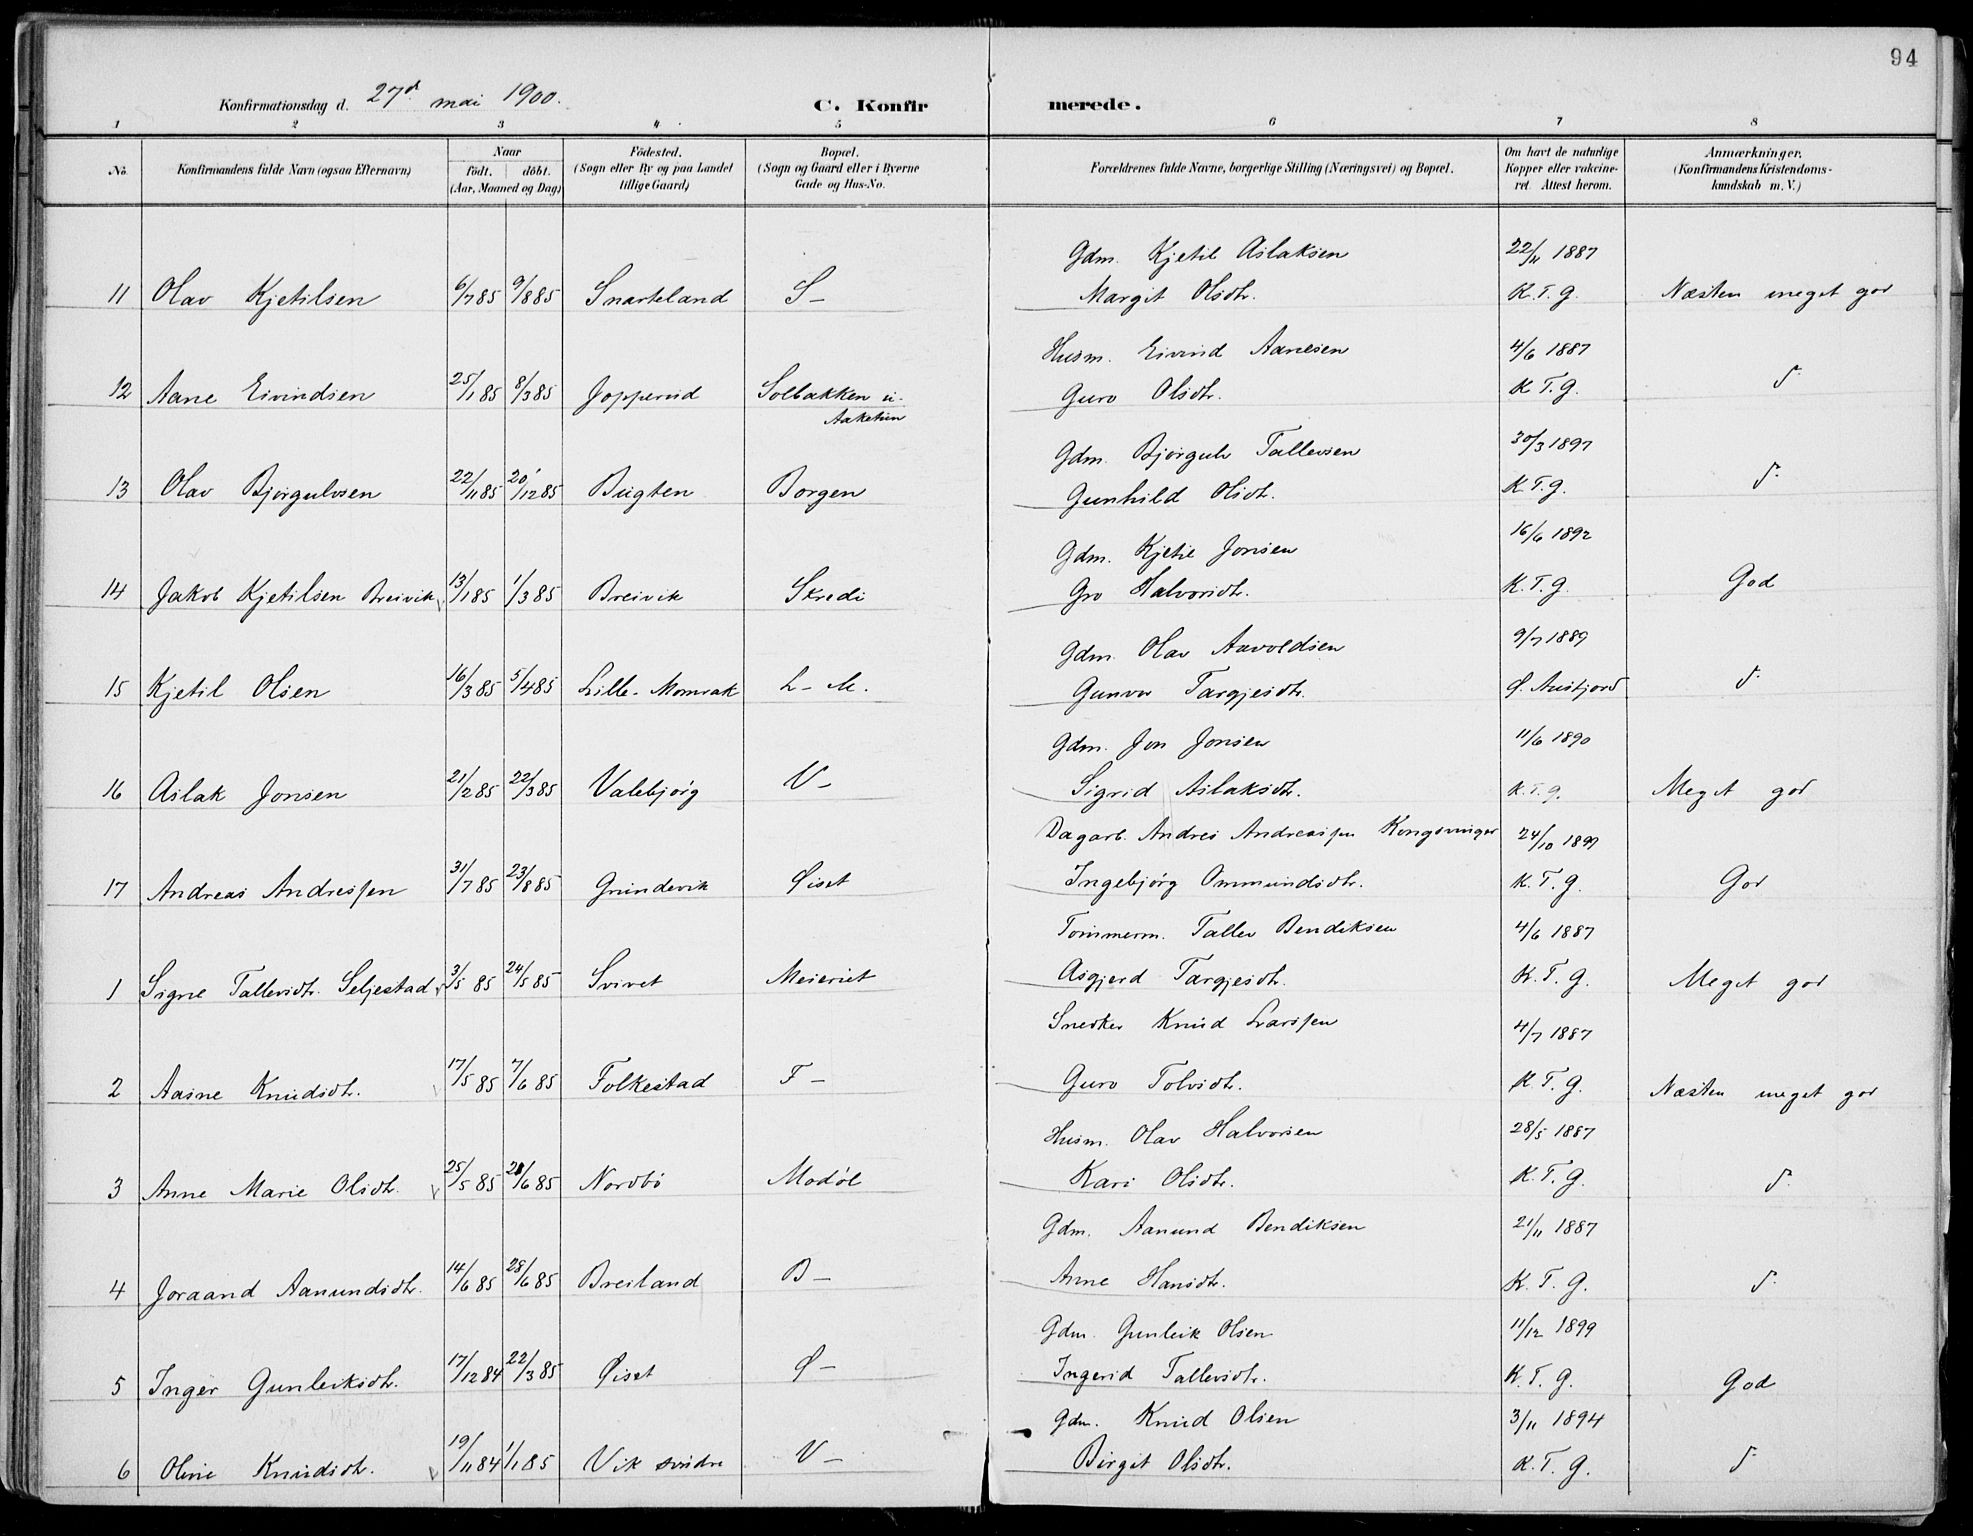 94
Konfirmationsdag d. 27d mai 1900.
C. Konfir merede.
1 2 3 4 5 6 7 8
No. Konfirmandens fulde Navn (ogsaa Efternavn) Naar født. døbt. (Aar, Maaned og Dag) Fødested. (Sogn eller By og paa Landet tillige Gaard) Bopæl. (Sogn og Gaard eller i Byerne Gade og Hus-No. Forældrenes fulde Navne, borgerlige Stilling (Næringsvei) og Bopæl. Om havt de naturlige Kopper eller vakcineret. Attest herom. Anmærkninger. (Konfirmandens Kristendomskundskab m. V.)
Gdm. Kjetil Aslaksen 22/11 1887
11 Olav Kjetilsen 6/7 85 9/8 85 Snarteland S- Margit Olsdtr. K.T.G. Næsten meget god
Husm. Eivind Aanesen 4/6 1887
12 Aane Eivindsen 25/1 85 8/3 85 Jopperud Solbakken u. Aaketun Guro Olsdtr. K.T.G. d.
Gdm. Bjørgulv Tallevsen 30/3 1897
13 Olav Bjørgulvsen 22/11 85 20/12 85 Bugten Borgen Gunhild Olsdtr. K.T.G. d.
Gdm. Kjetil Jonsen 16/6 1892
14 Jakob Kjetilsen Breivik 13/1 85 1/3 85 Breivik Skredi Gro Halvorsdtr. K.T.G. God
Gdm. Olav Aavoldsen 9/7 1889
15 Kjetil Olsen 16/3 85 5/4 85 Lille-Momrak L-M. Gunvor Targjesdtr. Ø. Ausfjord d.
Gdm. Jon Jonsen 11/6 1890
16 Aslak Jonsen 21/2 85 22/3 85 Valebjørg V- Sigrid Aslaksdtr. K.T.G. Meget god
Dagarb. Andres Andreassen Kongsvinger 24/10 1899
17 Andreas Andressen 31/7 85 23/8 85 Grundevik Øiset Ingebjørg Ommundsdtr. K.T.G. God
Tømmerm. Tallev Bendiksen 4/6 1887
1 Signe Tallevsdtr. Seljestad 3/5 85 24/5 85 Svivet Meieriet Asgjerd Targjesdtr. K.T.G. Meget god
Snedker Knud Larssen 4/7 1887
2 Aasne Knudsdtr. 17/5 85 7/6 85 Folkestad F- Guro Tolvsdtr. K.T.G. Næsten meget god
Husm. Olav Halvorsen 28/5 1887
3 Anne Marie Olsdtr. 25/5 85 21/6 85 Nordbø Modøl Kari Olsdtr. K.T.G. d.
Gdm. Aanund Bendiksen 21/11 1887
4 Joraand Aanundsdtr. 14/6 85 28/6 85 Breiland B- Anne Hansdtr. K.T.G. d.
Gdm. Gunleik Olsen 11/12 1899
5 Inger Gunleiksdtr. 17/12 84 22/3 85 Øiset Ø- Ingerid Tallevsdtr. K.T.G. God
Gdm. Knud Olsen 3/11 1894
6 Olvie Knudsdtr. 19/11 84 1/1 85 Vik søndre V- Birgit Olsdtr. K.T.G. d.